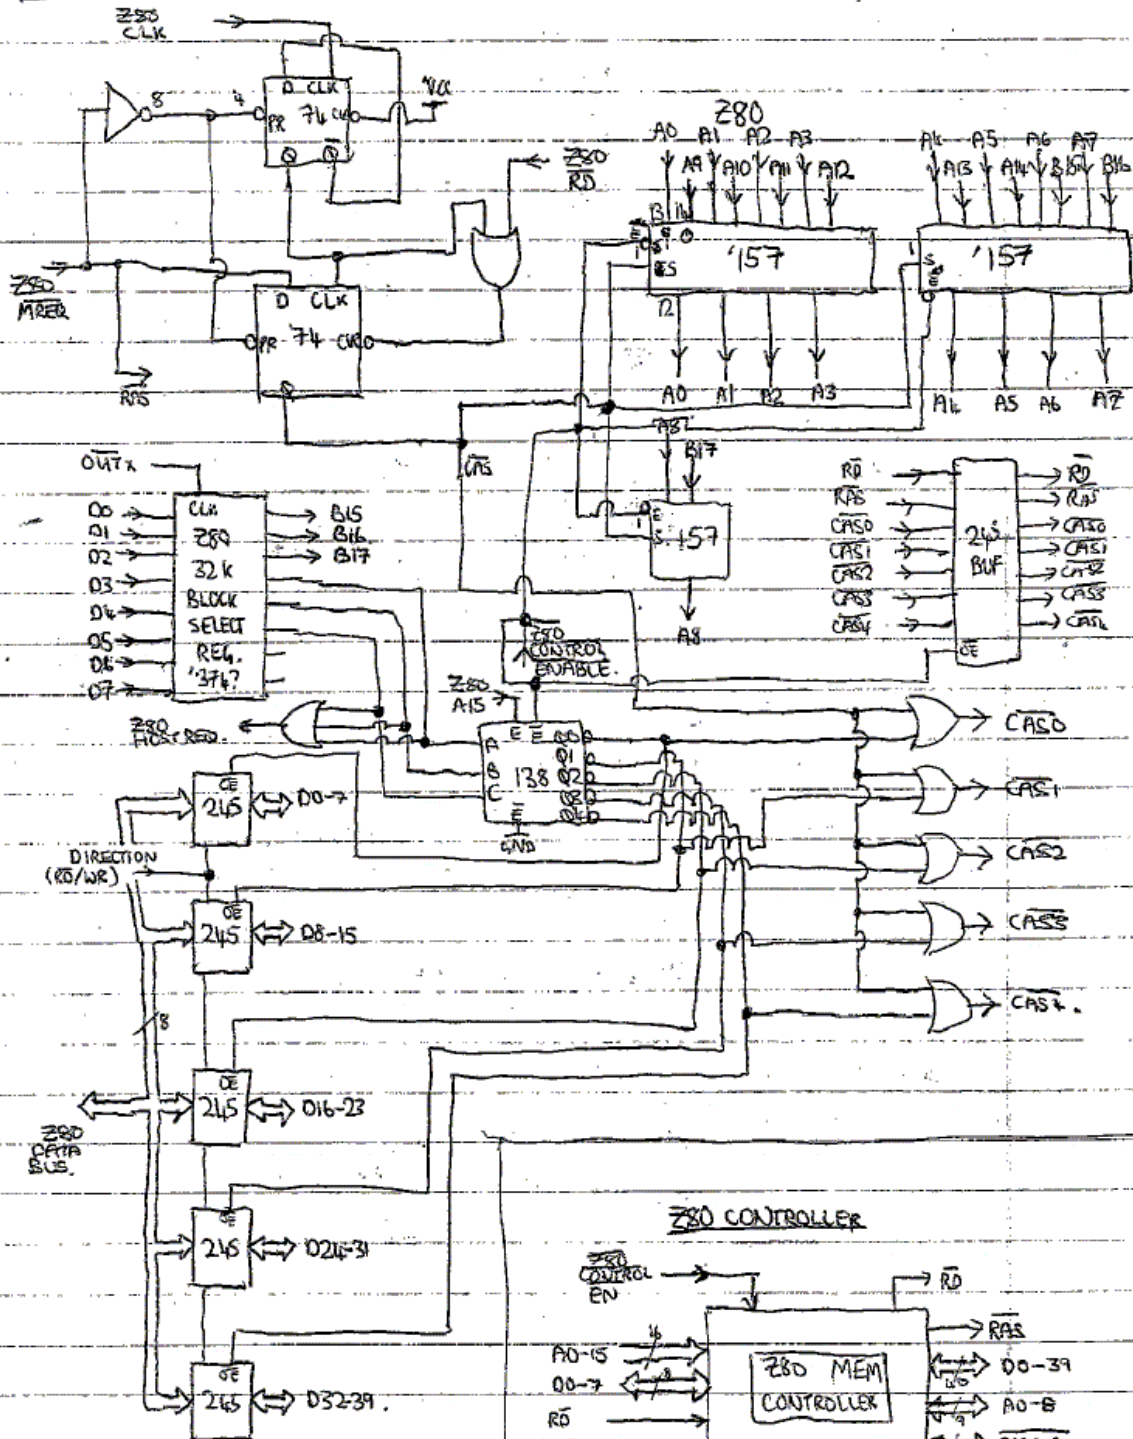 Z80
CLK
D CLK
8
4
PR 74 CLR
Q Q̅
VCC
Z80
R̅D̅
Z80
M̅R̅E̅Q̅
R̅A̅S̅
D CLK
PR '74 CLR
Q
Z80
A0 A1 A2 A3
A9 A10 A11 A12
13 14
E̅
1
S
'157
12
A0 A1 A2 A3
A4 A5 A6 A7
A13 A14 B15 B16
1
S
E̅
'157
A4 A5 A6 A7
C̅A̅S̅
A8
B17
E̅
1
S
157
A8
O̅U̅T̅x
D0
D1
D2
D3
D4
D5
D6
D7
CLK
Z80
32K
BLOCK
SELECT
REG.
'374?
B15
B16
B17
R̅D̅
R̅A̅S̅
C̅A̅S̅0̅
C̅A̅S̅1̅
C̅A̅S̅2̅
C̅A̅S̅3̅
C̅A̅S̅4̅
245
BUF
O̅E̅
R̅D̅
R̅A̅S̅
C̅A̅S̅0̅
C̅A̅S̅1̅
C̅A̅S̅2̅
C̅A̅S̅3̅
C̅A̅S̅4̅
Z̅8̅0̅
C̅O̅N̅T̅R̅O̅L̅
E̅N̅A̅B̅L̅E̅.
Z80
A15
Z80
HOST REQ.
E E̅
A
B
C
138
Q0
Q1
Q2
Q3
Q4
E̅
GND
C̅A̅S̅0̅
C̅A̅S̅1̅
C̅A̅S̅2̅
C̅A̅S̅3̅
C̅A̅S̅4̅.
O̅E̅
245
D0-7
DIRECTION
(RD/WR)
O̅E̅
245
D8-15
8
O̅E̅
245
D16-23
Z80
DATA
BUS.
O̅E̅
245
D24-31
O̅E̅
245
D32-39.
Z80 CONTROLLER
Z̅8̅0̅
C̅O̅N̅T̅R̅O̅L̅
E̅N̅
R̅D̅
R̅A̅S̅
A0-15
16
D0-7
8
R̅D̅
Z80 MEM
CONTROLLER
D0-39
40
A0-8
9